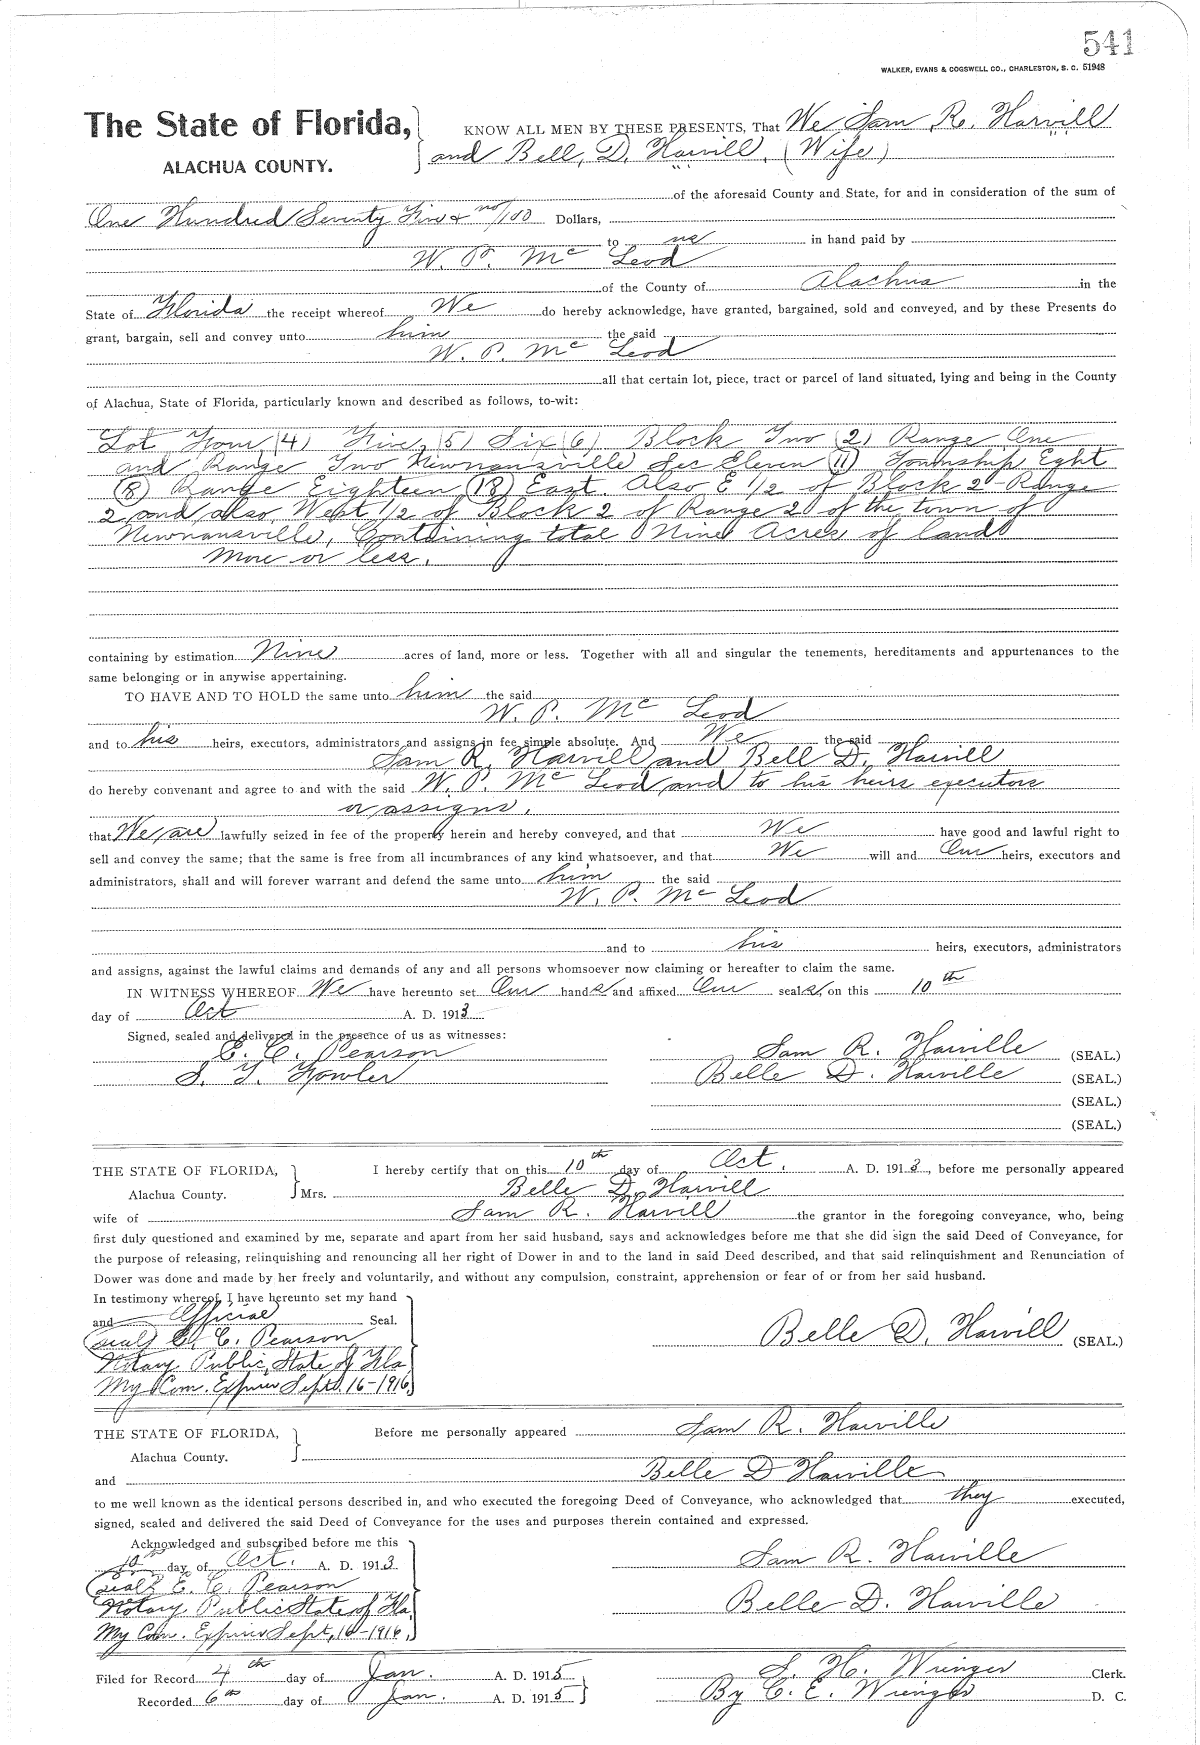 541
WALKER, EVANS & COGSWELL CO., CHARLESTON, S. C. 51948
The State of Florida,
ALACHUA COUNTY.
KNOW ALL MEN BY THESE PRESENTS, That We Sam R. Harvill
and Bell, D. Harvill, (Wife)
of the aforesaid County and State, for and in consideration of the sum of
One Hundred Seventy Five & no/100 Dollars,
to us in hand paid by
W. P. Mc Leod
of the County of Alachua in the
State of Florida the receipt whereof We do hereby acknowledge, have granted, bargained, sold and conveyed, and by these Presents do
grant, bargain, sell and convey unto him the said
W. P. Mc Leod
all that certain lot, piece, tract or parcel of land situated, lying and being in the County
of Alachua, State of Florida, particularly known and described as follows, to-wit:
Lot Four (4) Five (5) Six (6) Block Two (2) Range One
and Range Two Newnansville Sec Eleven (11) Township Eght
(8) Range Eighteen (18) East. Also E 1/2 of Block 2 - Range
2 and also West 1/2 of Block 2 of Range 2 of the town of
Newnansville, Containing total Nine Acres of land
more or less.
containing by estimation Nine acres of land, more or less. Together with all and singular the tenements, hereditaments and appurtenances to the
same belonging or in anywise appertaining.
TO HAVE AND TO HOLD the same unto him the said
W. P. Mc Leod
and to his heirs, executors, administrators and assigns in fee simple absolute. And We the said
Sam R. Harvill and Bell D. Harvill
do hereby convenant and agree to and with the said W. P. Mc Leod and to his heirs executors
or assigns.
that We are lawfully seized in fee of the property herein and hereby conveyed, and that We have good and lawful right to
sell and convey the same; that the same is free from all incumbrances of any kind whatsoever, and that We will and Our heirs, executors and
administrators, shall and will forever warrant and defend the same unto him the said
W. P. Mc Leod
and to his heirs, executors, administrators
and assigns, against the lawful claims and demands of any and all persons whomsoever now claiming or hereafter to claim the same.
IN WITNESS WHEREOF We have hereunto set Our hands and affixed Our seals, on this 10th
day of Oct A. D. 1913
Signed, sealed and delivered in the presence of us as witnesses:
E. C. Pearson
S. T. Fowler
Sam R. Harville (SEAL.)
Belle D. Harville (SEAL.)
(SEAL.)
(SEAL.)
THE STATE OF FLORIDA,
Alachua County.
I hereby certify that on this 10th day of Oct. A. D. 1913, before me personally appeared
Mrs. Belle D. Harvill
wife of Sam R. Harvill the grantor in the foregoing conveyance, who, being
first duly questioned and examined by me, separate and apart from her said husband, says and acknowledges before me that she did sign the said Deed of Conveyance, for
the purpose of releasing, relinquishing and renouncing all her right of Dower in and to the land in said Deed described, and that said relinquishment and Renunciation of
Dower was done and made by her freely and voluntarily, and without any compulsion, constraint, apprehension or fear of or from her said husband.
In testimony whereof, I have hereunto set my hand
and Official Seal.
(seal) E. C. Pearson
Notary Public, State of Fla
My Com. Expires Sept. 16-1916
Belle D. Harvill (SEAL.)
THE STATE OF FLORIDA,
Alachua County.
Before me personally appeared Sam R. Harville
and Belle D Harville
to me well known as the identical persons described in, and who executed the foregoing Deed of Conveyance, who acknowledged that they executed,
signed, sealed and delivered the said Deed of Conveyance for the uses and purposes therein contained and expressed.
Acknowledged and subscribed before me this
10th day of Oct. A. D. 1913
(seal) E. C. Pearson
Notary Public State of Fla,
My Com. Expires Sept, 16-1916,
Sam R. Harville
Belle D. Harville
Filed for Record 4th day of Jan. A. D. 1915
Recorded 6th day of Jan. A. D. 1915
S. H. Wienges Clerk.
By C. E. Wienges D. C.